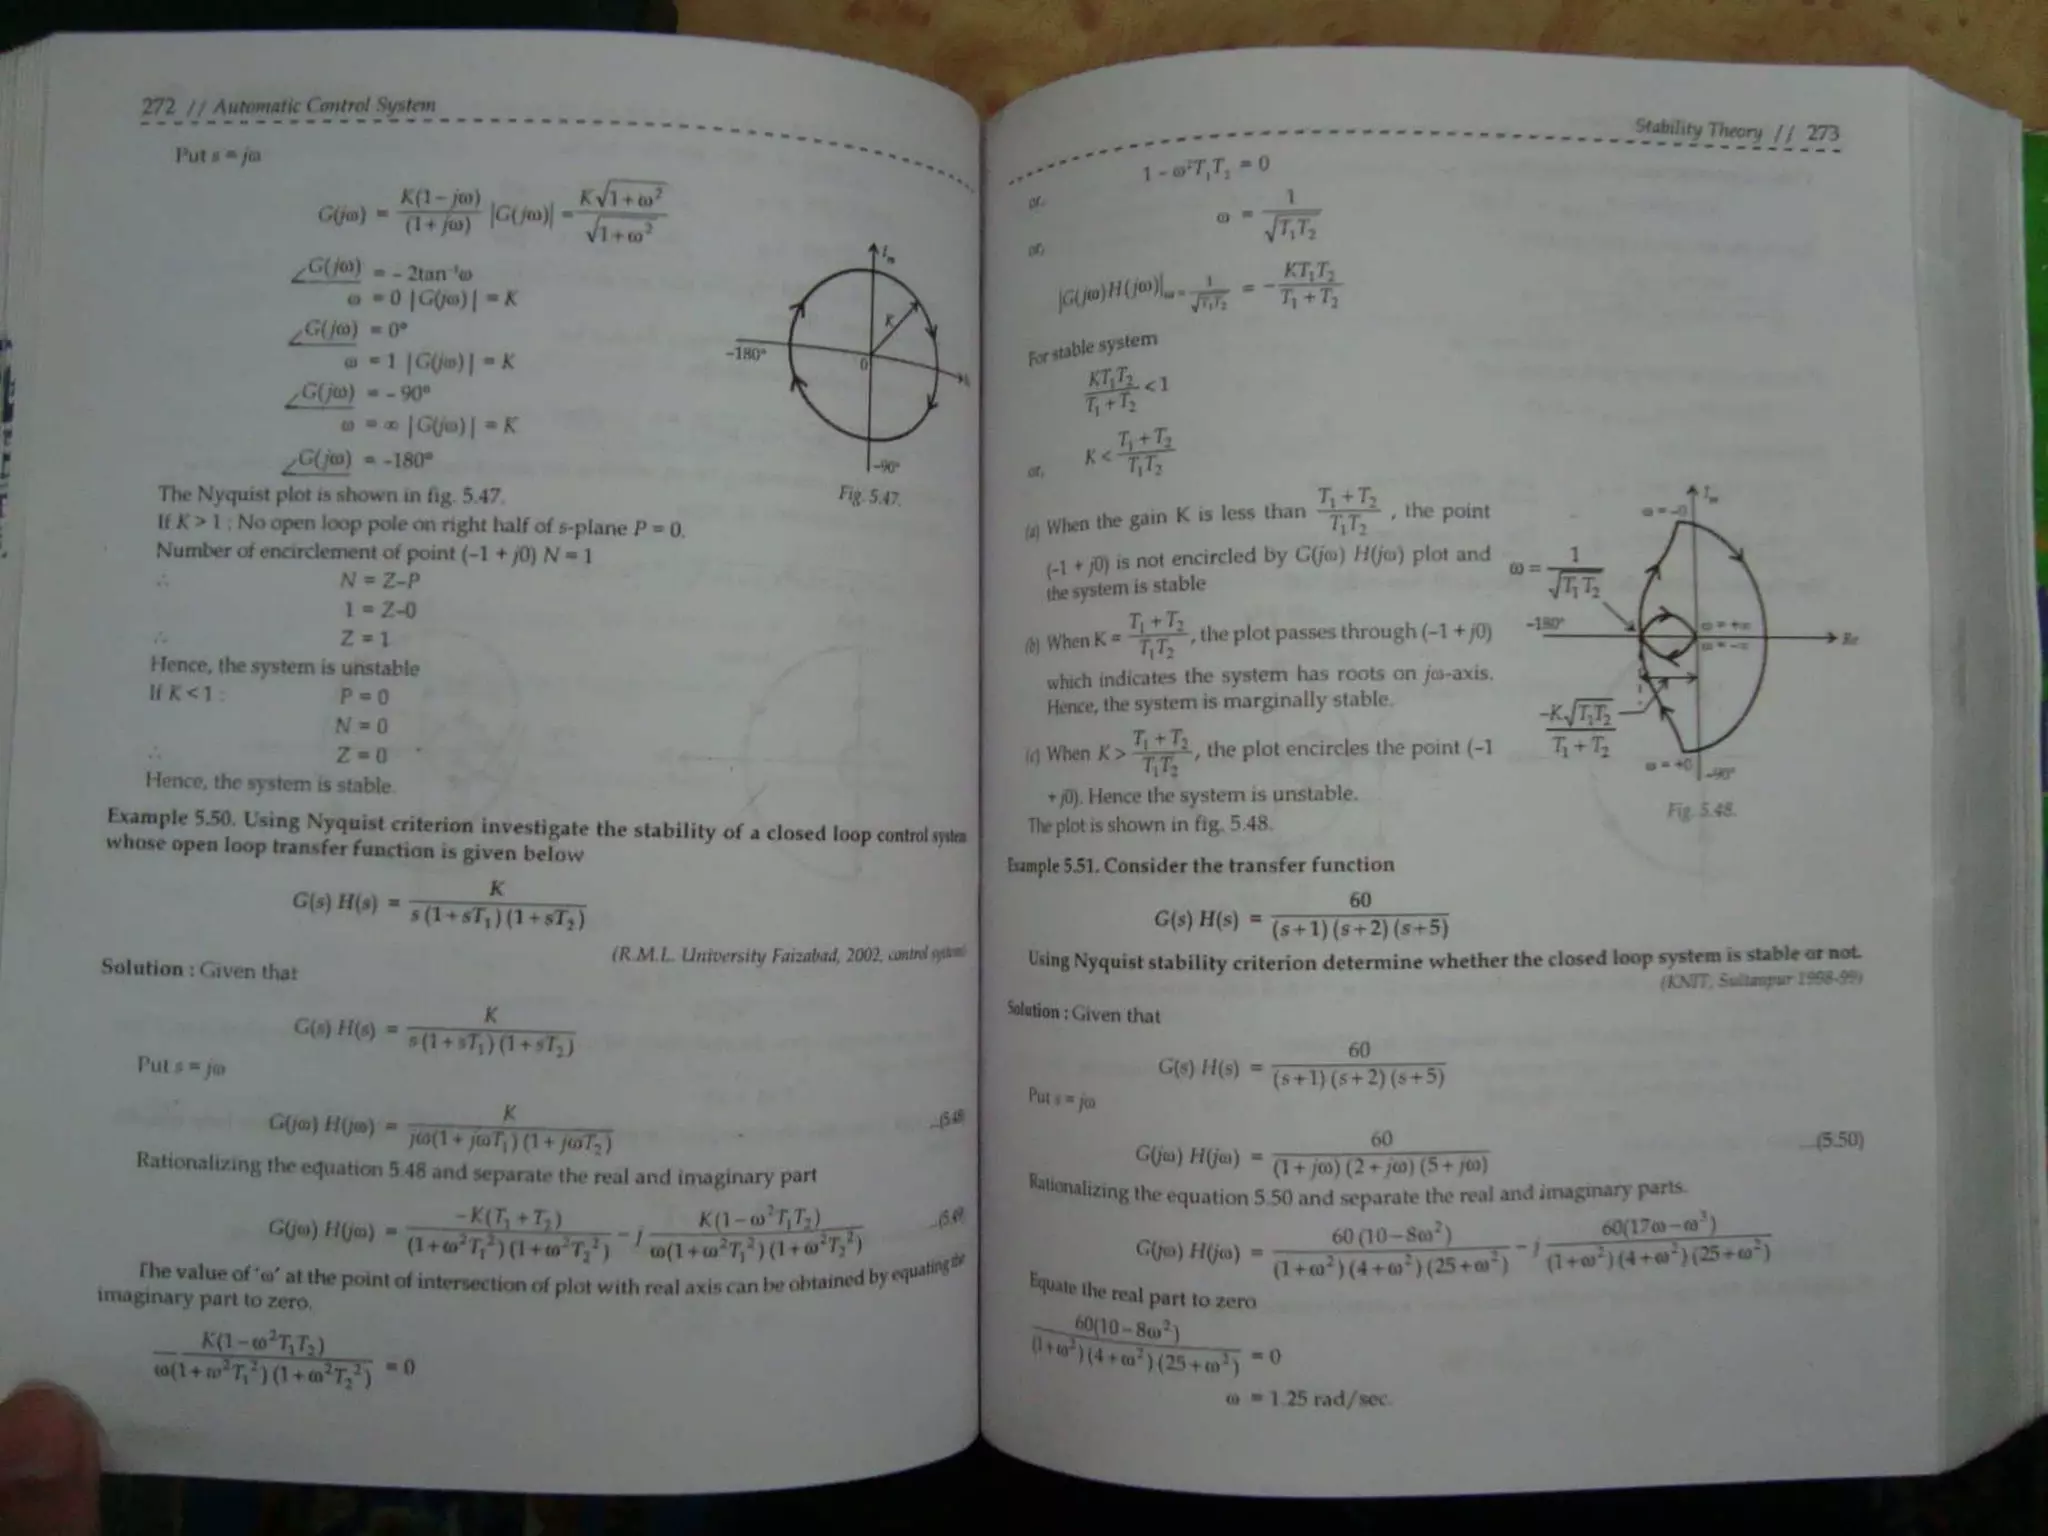 272 // Automatic Control System
Put s = jω
G(jω) = K(1 – jω) / (1 + jω) |G(jω)| = K√(1 + ω²) / √(1 + ω²)
∠G(jω) = – 2tan⁻¹ω
ω = 0 |G(jω)| = K
∠G(jω) = 0°
ω = 1 |G(jω)| = K
∠G(jω) = – 90°
ω = ∞ |G(jω)| = K
∠G(jω) = -180°
Im
K
-180°
0
-90°
Fig. 5.47.
The Nyquist plot is shown in fig. 5.47.
If K > 1 ; No open loop pole on right half of s-plane P = 0.
Number of encirclement of point (–1 + j0) N = 1
∴ N = Z–P
1 = Z–0
∴ Z = 1
Hence, the system is unstable
If K < 1 : P = 0
N = 0
∴ Z = 0
Hence, the system is stable.
Example 5.50. Using Nyquist criterion investigate the stability of a closed loop control system
whose open loop transfer function is given below
G(s) H(s) = K / s (1 + sT₁) (1 + sT₂)
(R.M.L. University Faizabad, 2002, control system)
Solution : Given that
G(s) H(s) = K / s (1 + sT₁) (1 + sT₂)
Put s = jω
G(jω) H(jω) = K / jω(1 + jωT₁) (1 + jωT₂) ...(5.48
Rationalizing the equation 5.48 and separate the real and imaginary part
G(jω) H(jω) = –K(T₁ + T₂) / (1 + ω²T₁²) (1 + ω²T₂²) – j K(1 – ω²T₁T₂) / ω(1 + ω²T₁²) (1 + ω²T₂²) ...(5.49
The value of 'ω' at the point of intersection of plot with real axis can be obtained by equating the
imaginary part to zero.
– K(1 – ω²T₁T₂) / ω(1 + ω²T₁²) (1 + ω²T₂²) = 0
Stability Theory // 273
1 – ω²T₁T₂ = 0
or, ω = 1 / √T₁T₂
or, |G(jω)H(jω)|ω = 1/√T₁T₂ = – KT₁T₂ / T₁ + T₂
For stable system
KT₁T₂ / T₁ + T₂ < 1
or, K < T₁ + T₂ / T₁T₂
(a) When the gain K is less than T₁ + T₂ / T₁T₂ , the point
(–1 + j0) is not encircled by G(jω) H(jω) plot and
the system is stable
(b) When K = T₁ + T₂ / T₁T₂ , the plot passes through (–1 + j0)
which indicates the system has roots on jω-axis.
Hence, the system is marginally stable.
(c) When K > T₁ + T₂ / T₁T₂ , the plot encircles the point (–1
+ j0). Hence the system is unstable.
The plot is shown in fig. 5.48.
Im
ω = –0
ω = 1 / √T₁T₂
-180°
ω = +∞
ω = –∞
Re
–K√T₁T₂ / T₁ + T₂
ω = +0
-90°
Fig. 5.48.
Example 5.51. Consider the transfer function
G(s) H(s) = 60 / (s + 1) (s + 2) (s + 5)
Using Nyquist stability criterion determine whether the closed loop system is stable or not.
(KNIT, Sultanpur 1998-99)
Solution : Given that
G(s) H(s) = 60 / (s + 1) (s + 2) (s + 5)
Put s = jω
G(jω) H(jω) = 60 / (1 + jω) (2 + jω) (5 + jω) ...(5.50)
Rationalizing the equation 5.50 and separate the real and imaginary parts.
G(jω) H(jω) = 60 (10 – 8ω²) / (1 + ω²) (4 + ω²) (25 + ω²) – j 60(17ω – ω³) / (1 + ω²) (4 + ω²) (25 + ω²)
Equate the real part to zero
60(10 – 8ω²) / (1 + ω²) (4 + ω²) (25 + ω²) = 0
ω = 1.25 rad/sec.